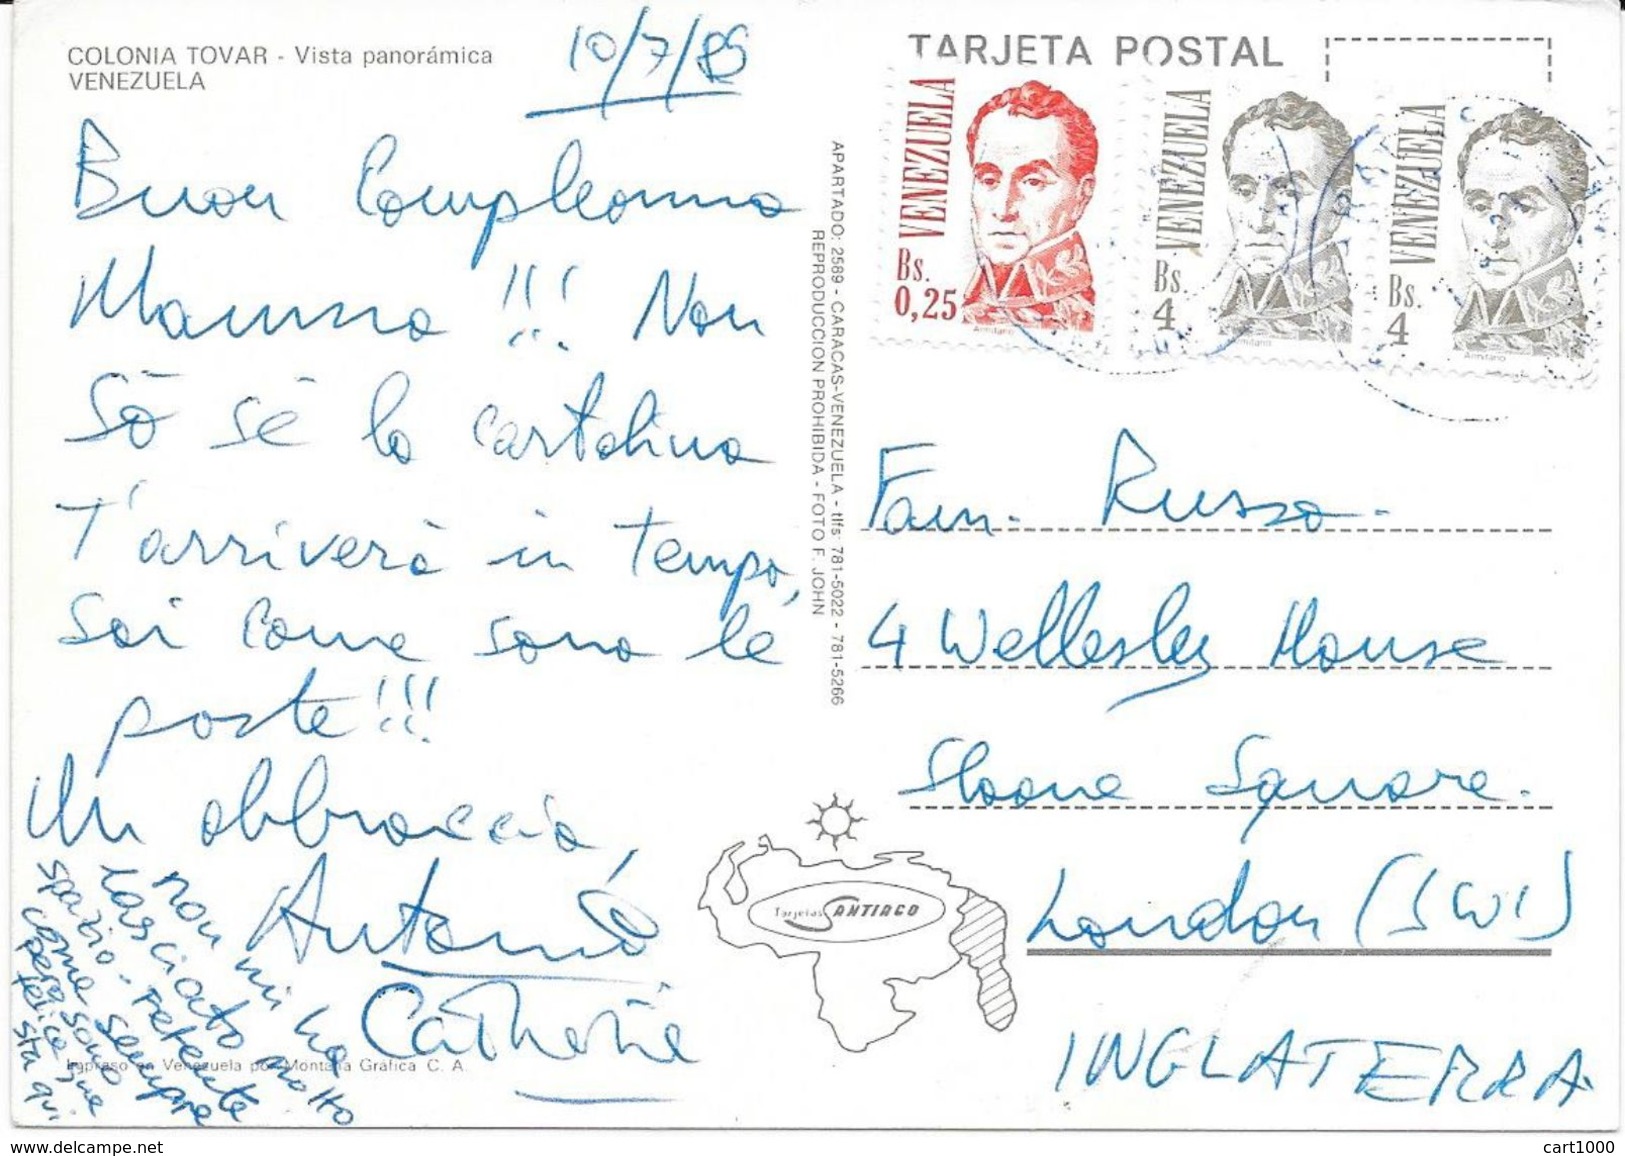 COLONIA TOVAR - Vista panorámica
VENEZUELA
10/7/89
Buon Compleanno
Mamma !!! Non
Sò sè la cartolina
T'arriverà in Tempo,
Sai come sono le
poste!!!
Un abbraccio,
Antonio
Catherine
non mi ha
lasciato molto
spazio -
come sono sempre
sta qui
Impreso en Venezuela por Montana Gráfica C. A.
APARTADO: 2589 - CARACAS-VENEZUELA - tlfs: 781-5022 - 781-5266
REPRODUCCION PROHIBIDA - FOTO F. JOHN
TARJETA POSTAL
VENEZUELA
Bs.
0,25
Armitano
VENEZUELA
Bs.
4
Armitano
VENEZUELA
Bs.
4
Armitano
Fam. Russo.
4 Wellesley House
Sloane Square.
London (SW1)
INGLATERRA.
Tarjetas SANTIAGO
www.delcampe.net
cart1000